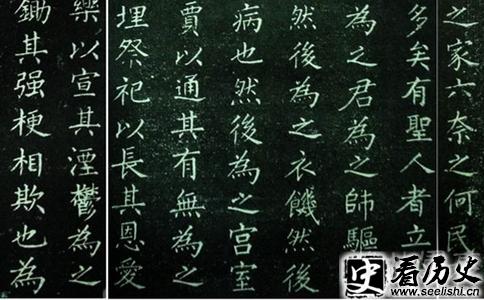 之家六奈之何民
多矣有聖人者立
為之君為之師驅
然後為之衣饑然後
病也然後為之宮室
賈以通其有無為之
埋祭祀以長其恩愛
樂以宣其湮鬱為之
鋤其强梗相欺也為
史 看历史
www.seelishi.cn